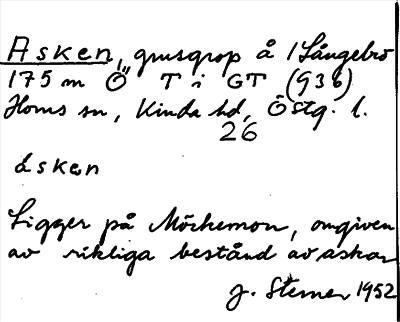 Asken, grusgrop å 1 Långebro
175 m Ö T i GT (936)
Horns sn, Kinda hd, Östg. l.
26
ásken
Ligger på Möckemon, omgiven
av rikliga bestånd av askar
J. Sterner 1952